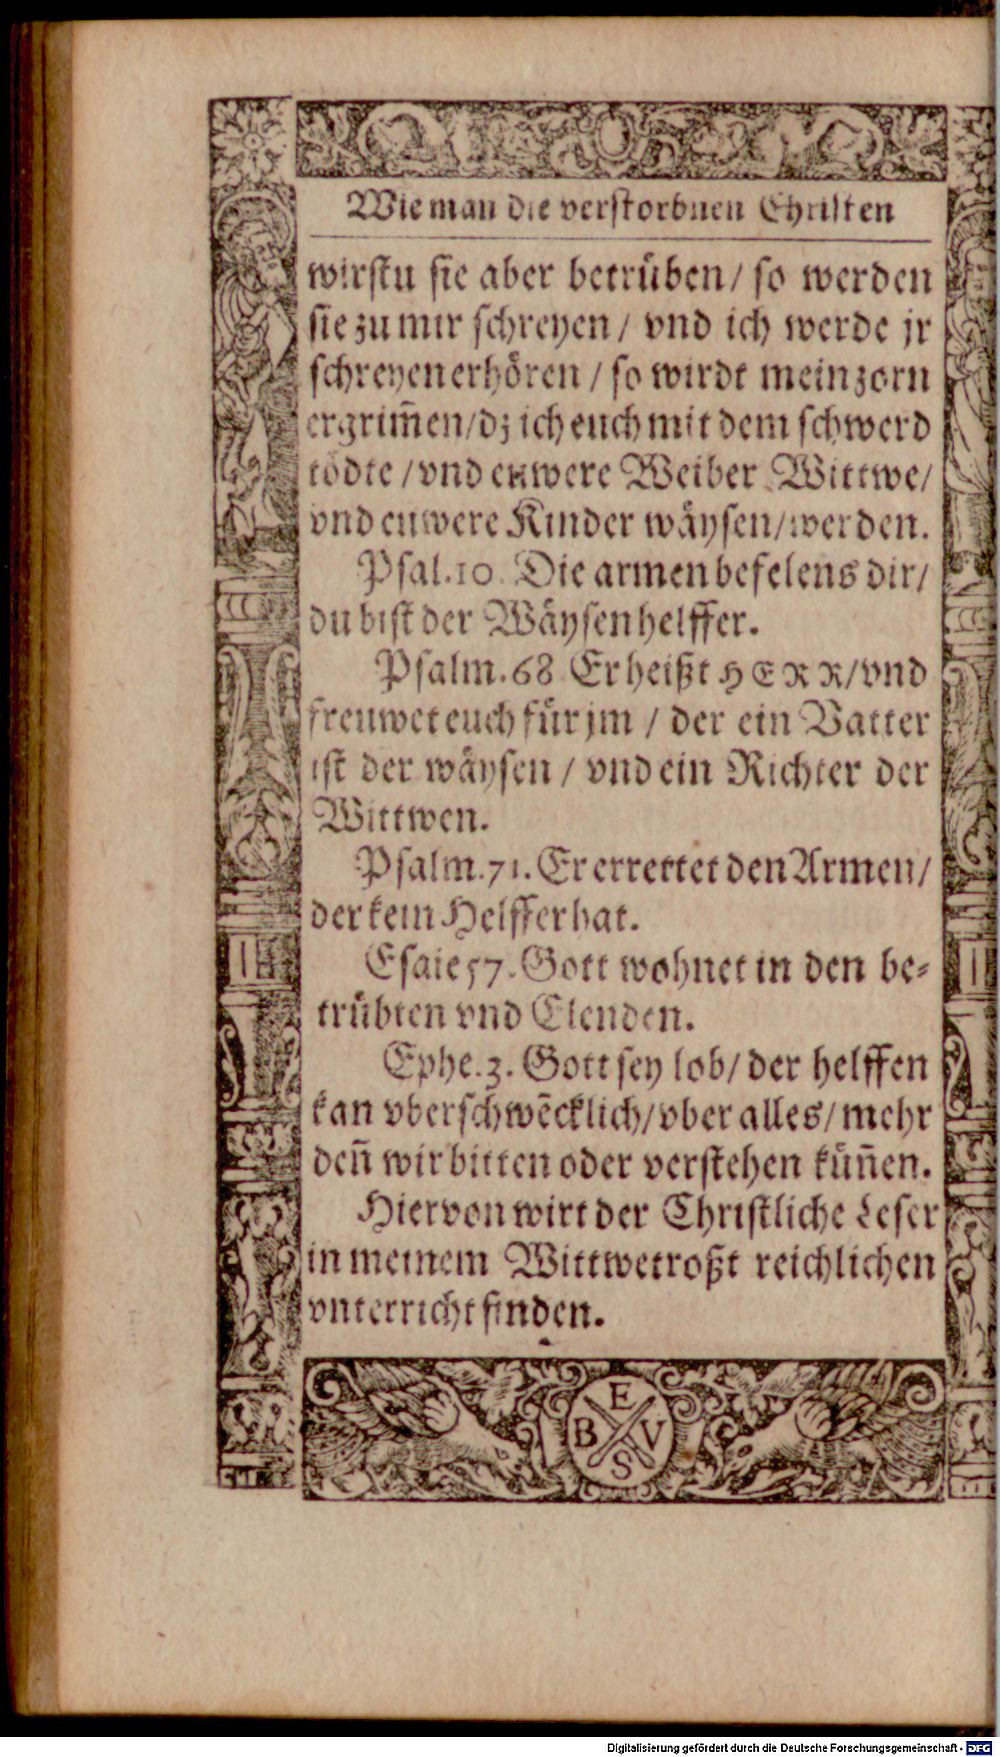 Wie man die verstorbnen Christen
wirstu sie aber betrüben/ so werden
sie zu mir schreyen/ vnd ich werde jr
schreyen erhören / so wirdt mein zorn
ergrim̃en/dz ich euch mit dem schwerd
tödte /vnd euwere Weiber Wittwe/
vnd euwere Kinder wäysen/werden.
Psal.10. Die armen befelens dir/
du bist der Wäysen helffer.
Psalm.68 Er heißt HERR/vnd
freuwet euch für jm / der ein Vatter
ist der wäysen / vnd ein Richter der
Wittwen.
Psalm.71. Er errettet den Armen/
der kein Helffer hat.
Esaie 57. Gott wohnet in den be⸗
trübten vnd Elenden.
Ephe.3. Gott sey lob/ der helffen
kan vberschwẽcklich/vber alles/ mehr
deñ wir bitten oder verstehen küñen.
Hiervon wirt der Christliche Leser
in meinem Wittwetroßt reichlichen
vnterricht finden.
E
B V
S
Digitalisierung gefördert durch die Deutsche Forschungsgemeinschaft - DFG